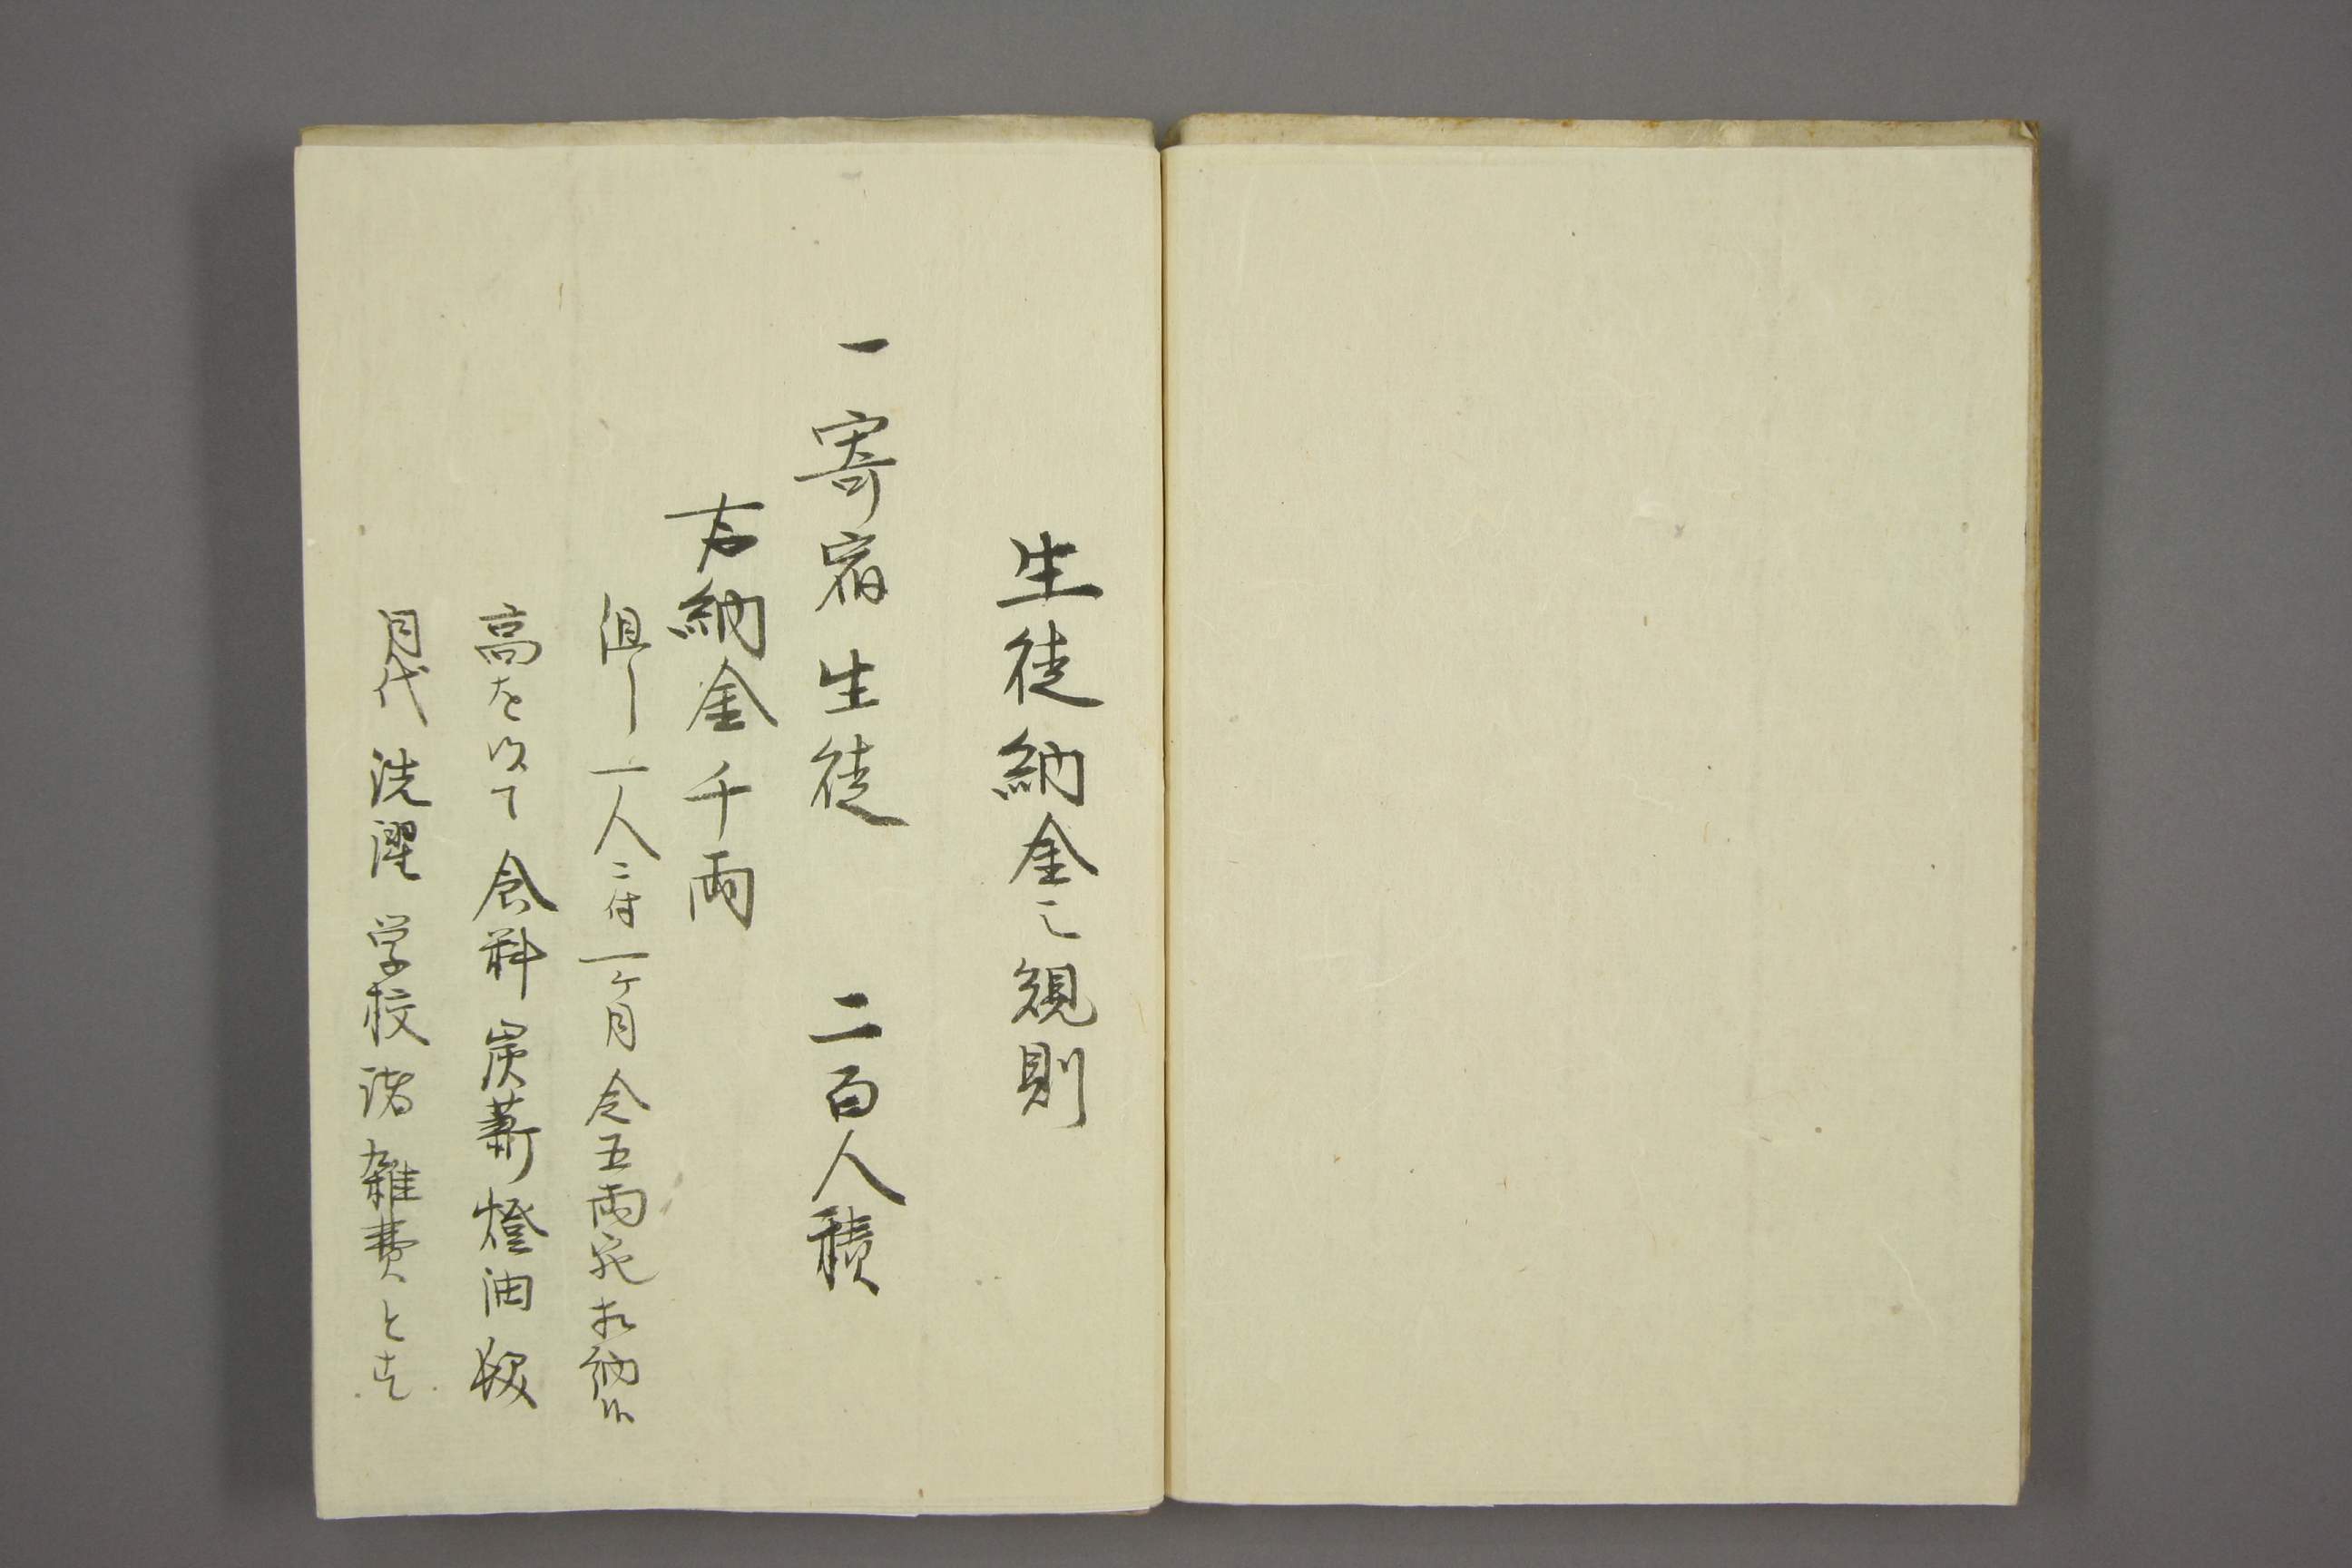 生徒納金之規則
一寄宿生徒　二百人積
右納金千両
但シ一人ニ付一ケ月金五両宛相納候
高を以て食料炭薪燈油髪
月代洗濯学校諸雑費とす